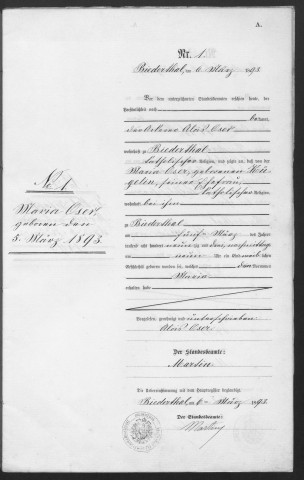 A.
Nr. 1
Biederthal, am 6. März 1893.
Vor dem unterzeichneten Standesbeamten erschien heute, der
Persönlichkeit nach
kannt,
der Ackerer Aloïs Eser
wohnhaft zu Biederthal
katholischer Religion, und zeigte an, daß von der
Maria Eser, geborenen
seiner Ehefrau,
katholischer Religion,
wohnhaft bei ihm
zu Biederthal
am fünften März des Jahres
tausend acht hundert neunzig und drei, nachmittags
um neun Uhr ein Kind weib-
lichen Geschlechts geboren worden sei, welches den Vornamen
Maria
erhalten habe
Vorgelesen, genehmigt und unterschrieben
Aloïs Eser
Der Standesbeamte:
Martin
Die Uebereinstimmung mit dem Hauptregister beglaubigt
Biederthal, am 6. März 1893.
Der Standesbeamte:
Martin
No 1
Maria Eser
geboren den
5. März 1893.